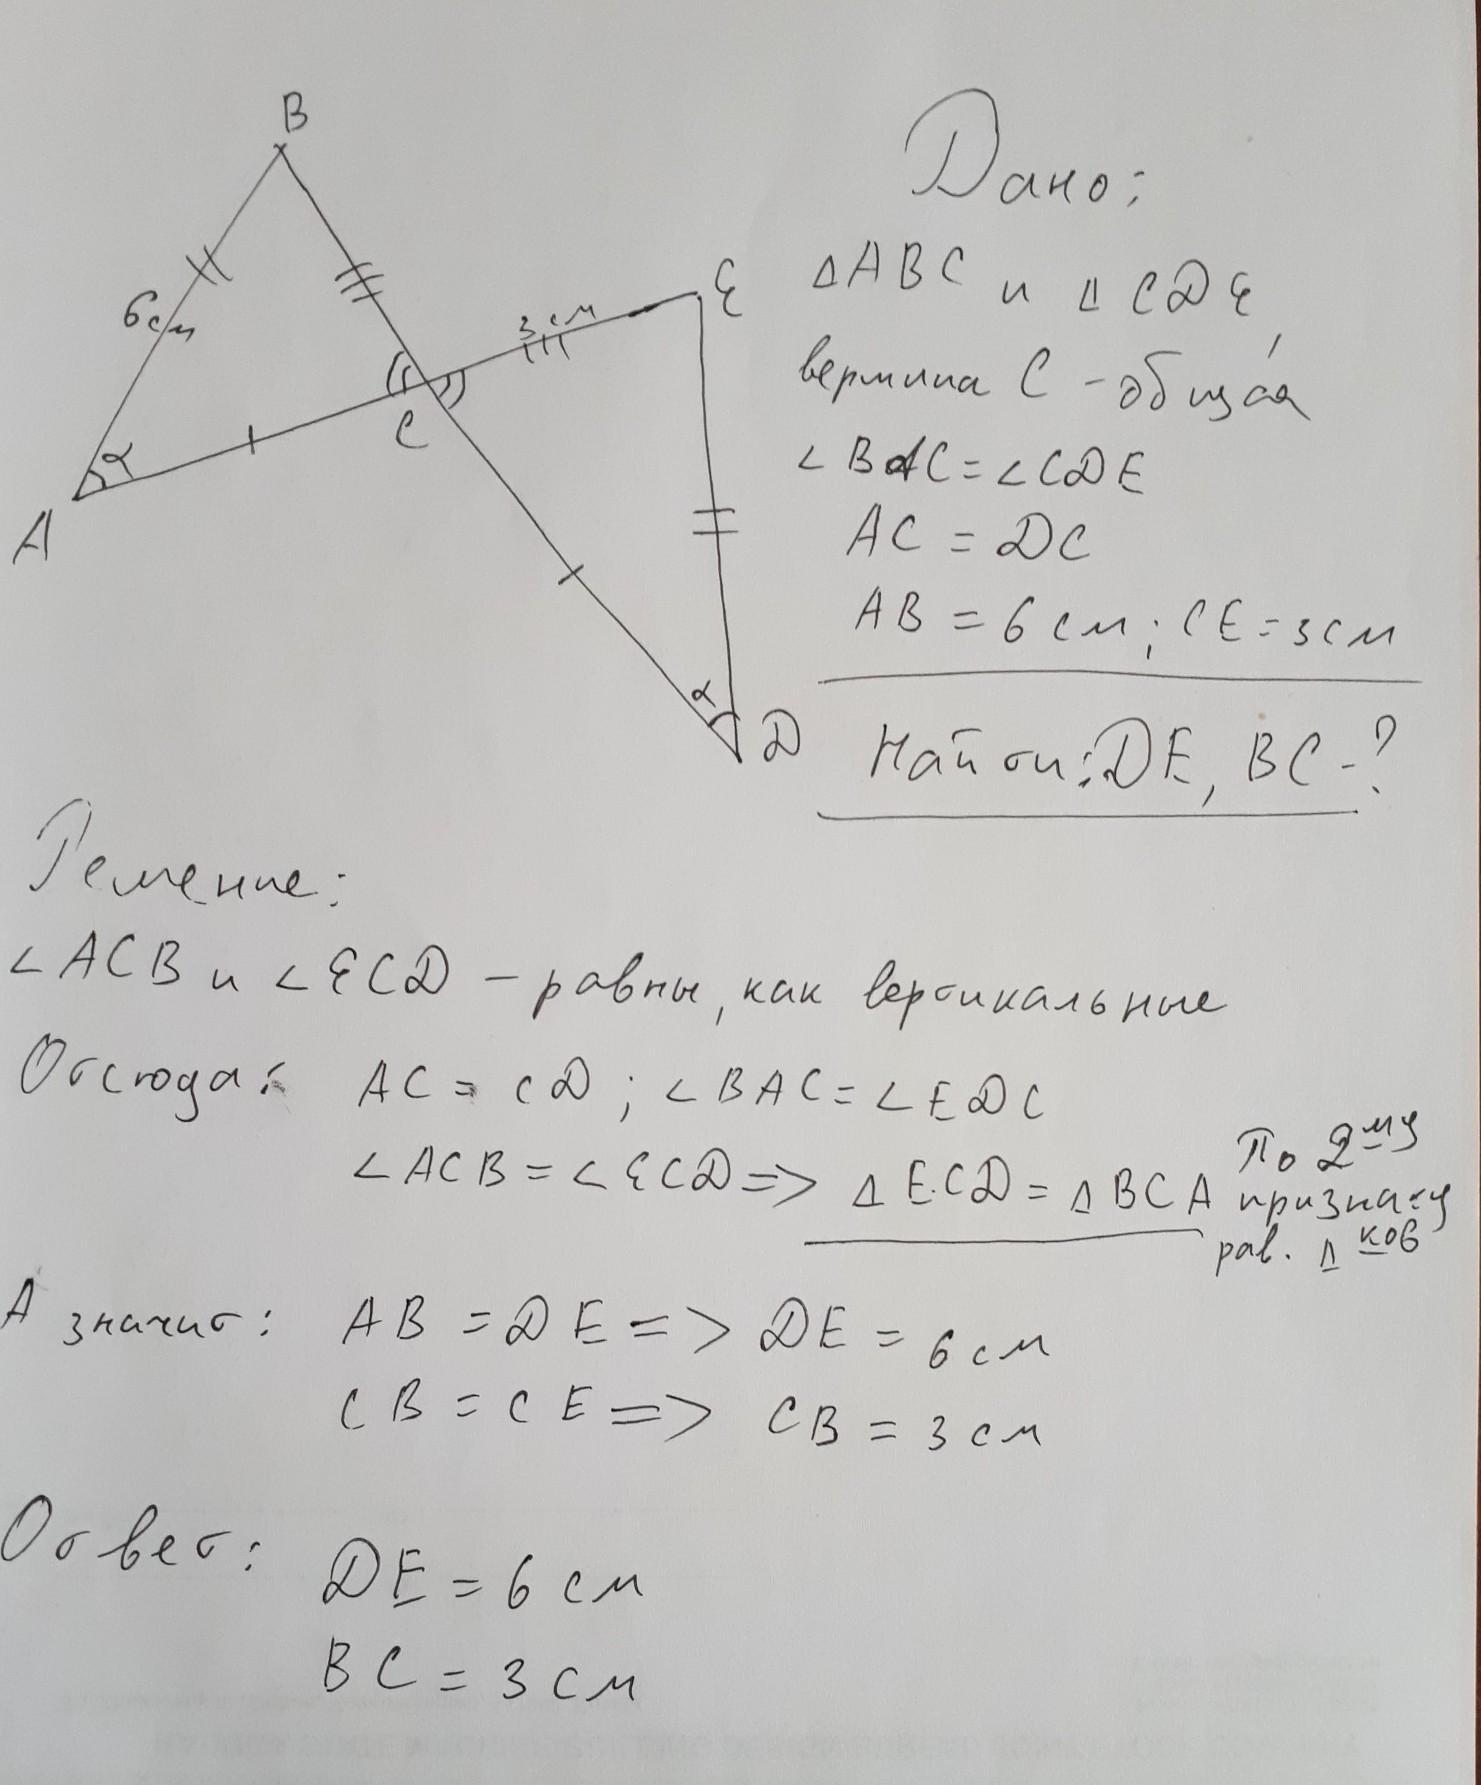 B
6 см
3 см
E
C
α
A
α
D
Дано:
Δ ABC и Δ CDE,
вершина C - общая
∠BAC = ∠CDE
AC = DC
AB = 6 см; CE = 3 см
Найти: DE, BC - ?
Решение:
∠ACB и ∠ECD - равны, как вертикальные
Отсюда: AC = CD; ∠BAC = ∠EDC
∠ACB = ∠ECD => Δ ECD = Δ BCA По 2му
признаку
рав. Δков
А значит: AB = DE => DE = 6 см
CB = CE => CB = 3 см
Ответ: DE = 6 см
BC = 3 см